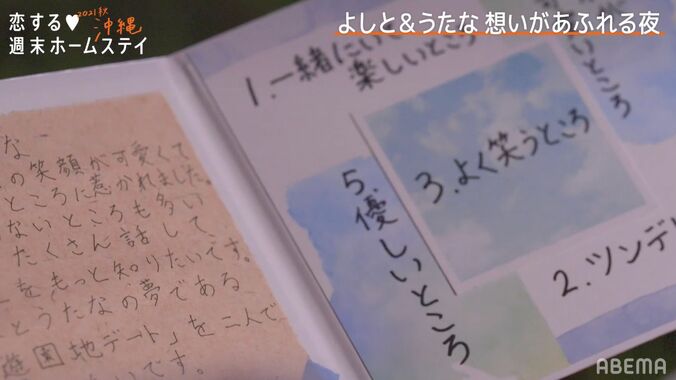 恋する♥
週末ホームステイ
2021秋
沖縄
よしと＆うたな 想いがあふれる夜
な
の笑顔が可愛くて
ところに惹かれました。
ないところも多い
たくさん話して、
をもっと知りたいです。
とうたなの夢である
遊園地デート」を二人で
たいです。
1.一緒にい
楽しいところ
いところ
3.よく笑うところ
5.優しいところ
2.ツンデ
ABEMA